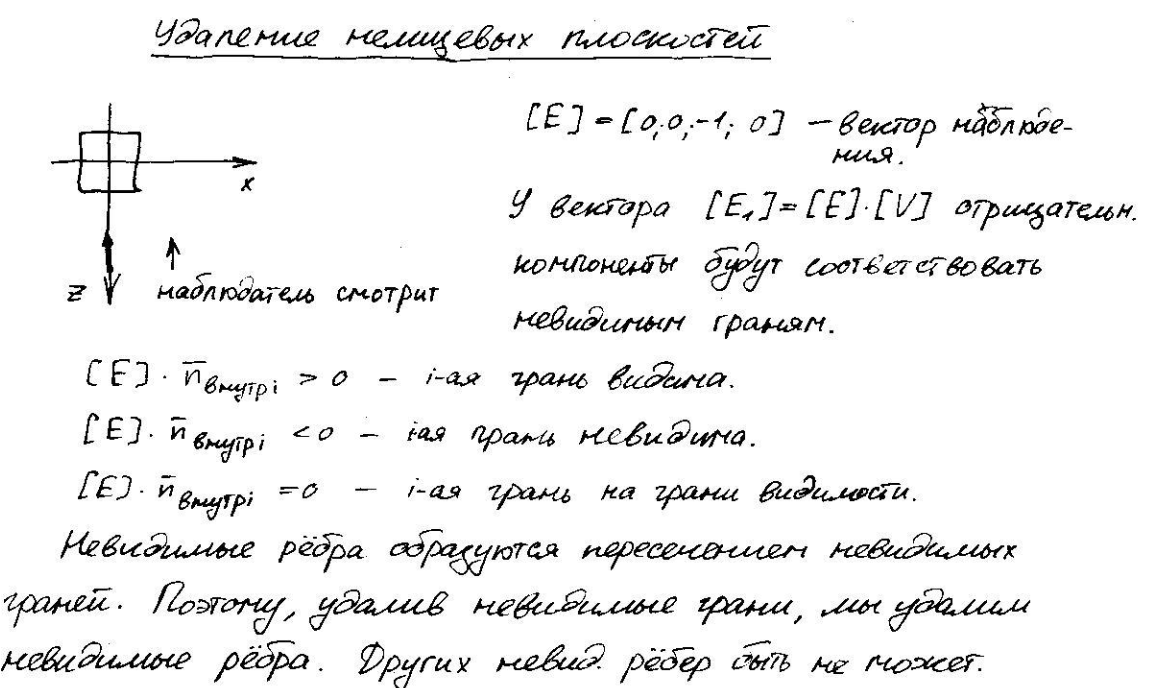 Удаление нелицевых плоскостей
[E] = [0; 0; -1; 0] – вектор наблюде-
ния.
x
У вектора [E₁]=[E]·[V] отрицательн.
компоненты будут соответствовать
невидимым граням.
z
наблюдатель смотрит
[E] · n̅внутрi > 0 – i-ая грань видима.
[E] · n̅внутрi < 0 – iая грань невидима.
[E] · n̅внутрi = 0 – i-ая грань на грани видимости.
Невидимые рёбра образуются пересечением невидимых
граней. Поэтому, удалив невидимые грани, мы удалим
невидимые рёбра. Других невид. рёбер быть не может.